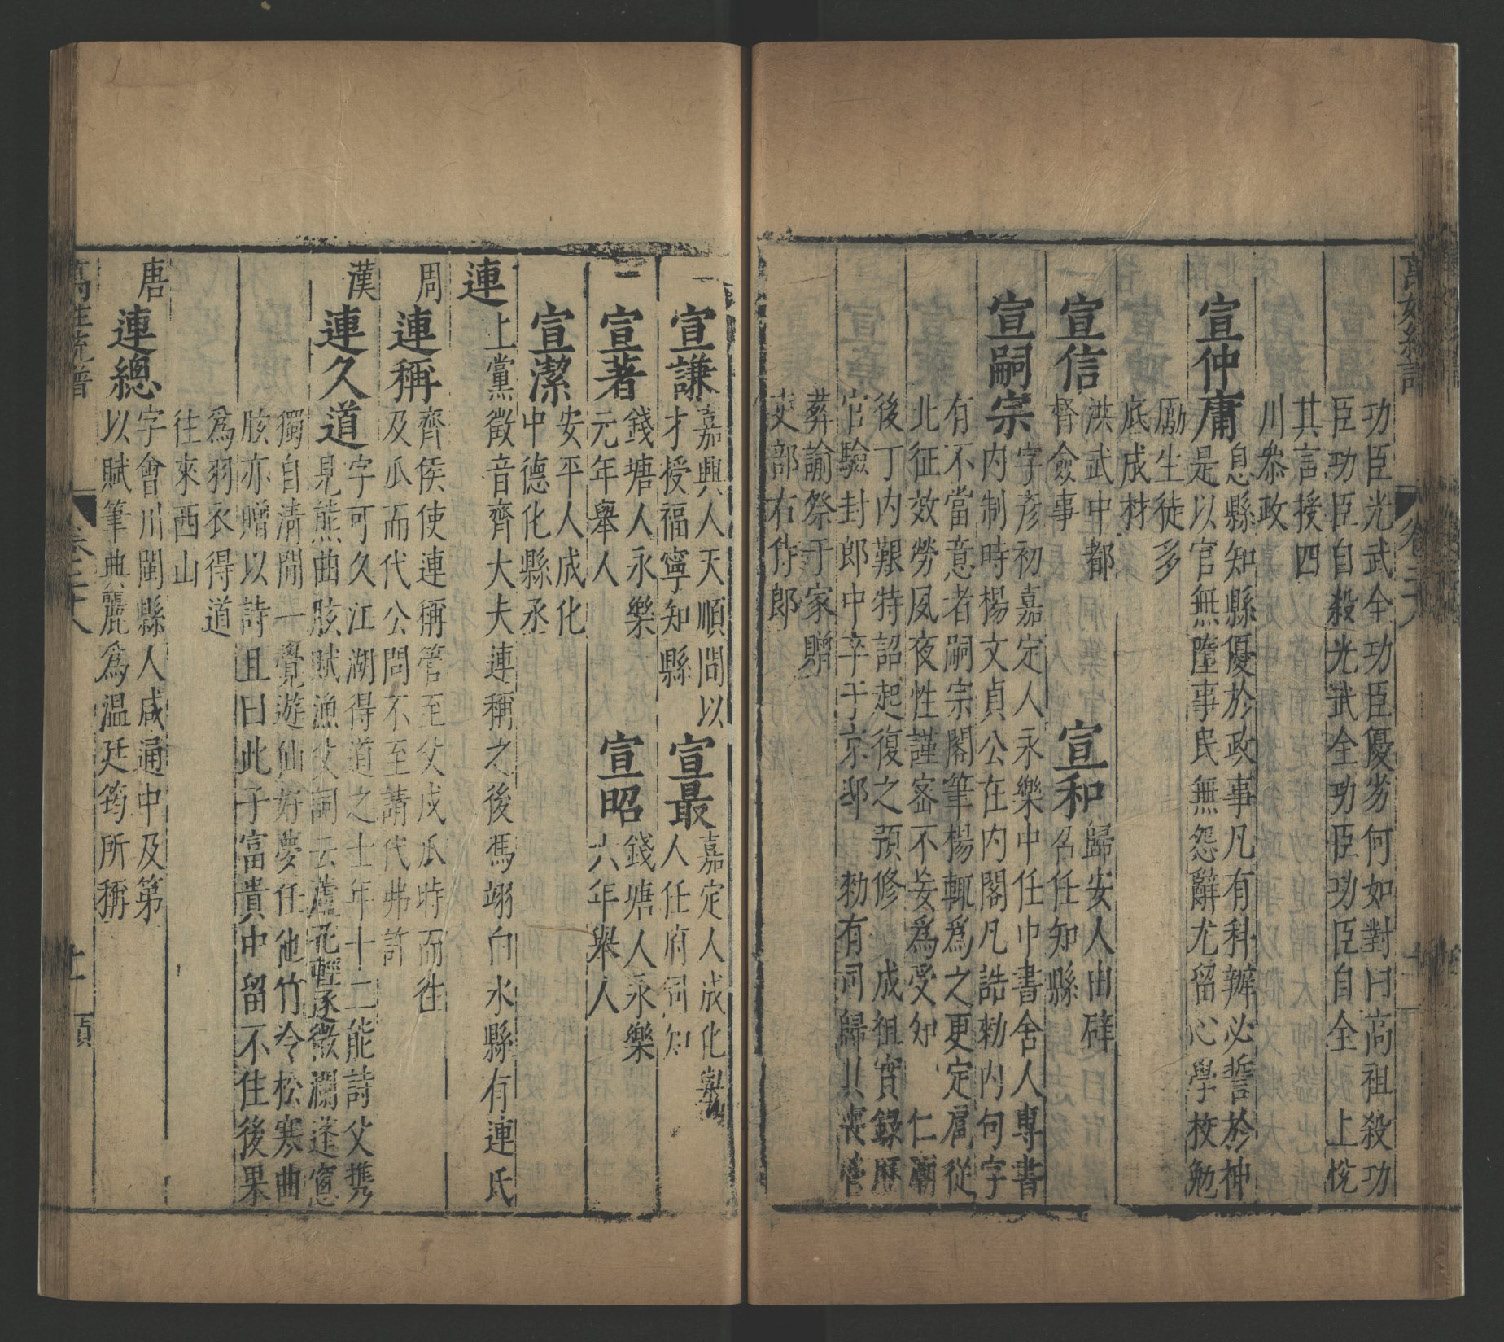 功臣光武全功臣優劣何如對曰高祖殺功
臣功臣自殺光武全功臣功臣自全 上悅
其言授四
川叅政
宣仲庸
息縣知縣優於政事凡有科辦必誓於神
是以官無墮事民無怨辭尤留心學校勉
勵生徒多
底成材
宣信
洪武中都
督僉事
宣和
歸安人由辟
名任知縣
宣嗣宗
字彥初嘉定人永樂中任中書舍人專書
內制時楊文貞公在內閣凡誥勑內句字
有不當意者嗣宗閣筆楊輒為之更定扈從
北征效勞夙夜性謹密不妄為受知 仁廟
後丁內艱特詔起復之預修 成祖實錄歷
官驗封郎中卒于京邸 勑有司歸其喪營
葬諭祭于家贈
吏部右侍郎
宣謙
嘉興人天順間以
才授福寧知縣
宣最
嘉定人成化
人任府同知
宣著
錢塘人永樂
元年舉人
宣昭
錢塘人永樂
六年舉人
宣潔
安平人成化
中德化縣丞
連
上黨徵音齊大夫連稱之後馮翊白水縣有連氏
周
連稱
齊侯使連稱管至父戍瓜時而往
及瓜而代公問不至請代弗許
漢
連久道
字可久江湖得道之士年十二能詩父携
見熊曲肱賦漁父詞云蘆花輕逐微瀾蓬窻
獨自清閒一覺遊仙好夢任他竹冷松寒曲
肱亦贈以詩且曰此子富貴中留不住後果
為羽衣得道
往來西山
唐
連總
字會川閩縣人咸通中及第
以賦筆典麗為溫廷筠所稱
萬姓統譜